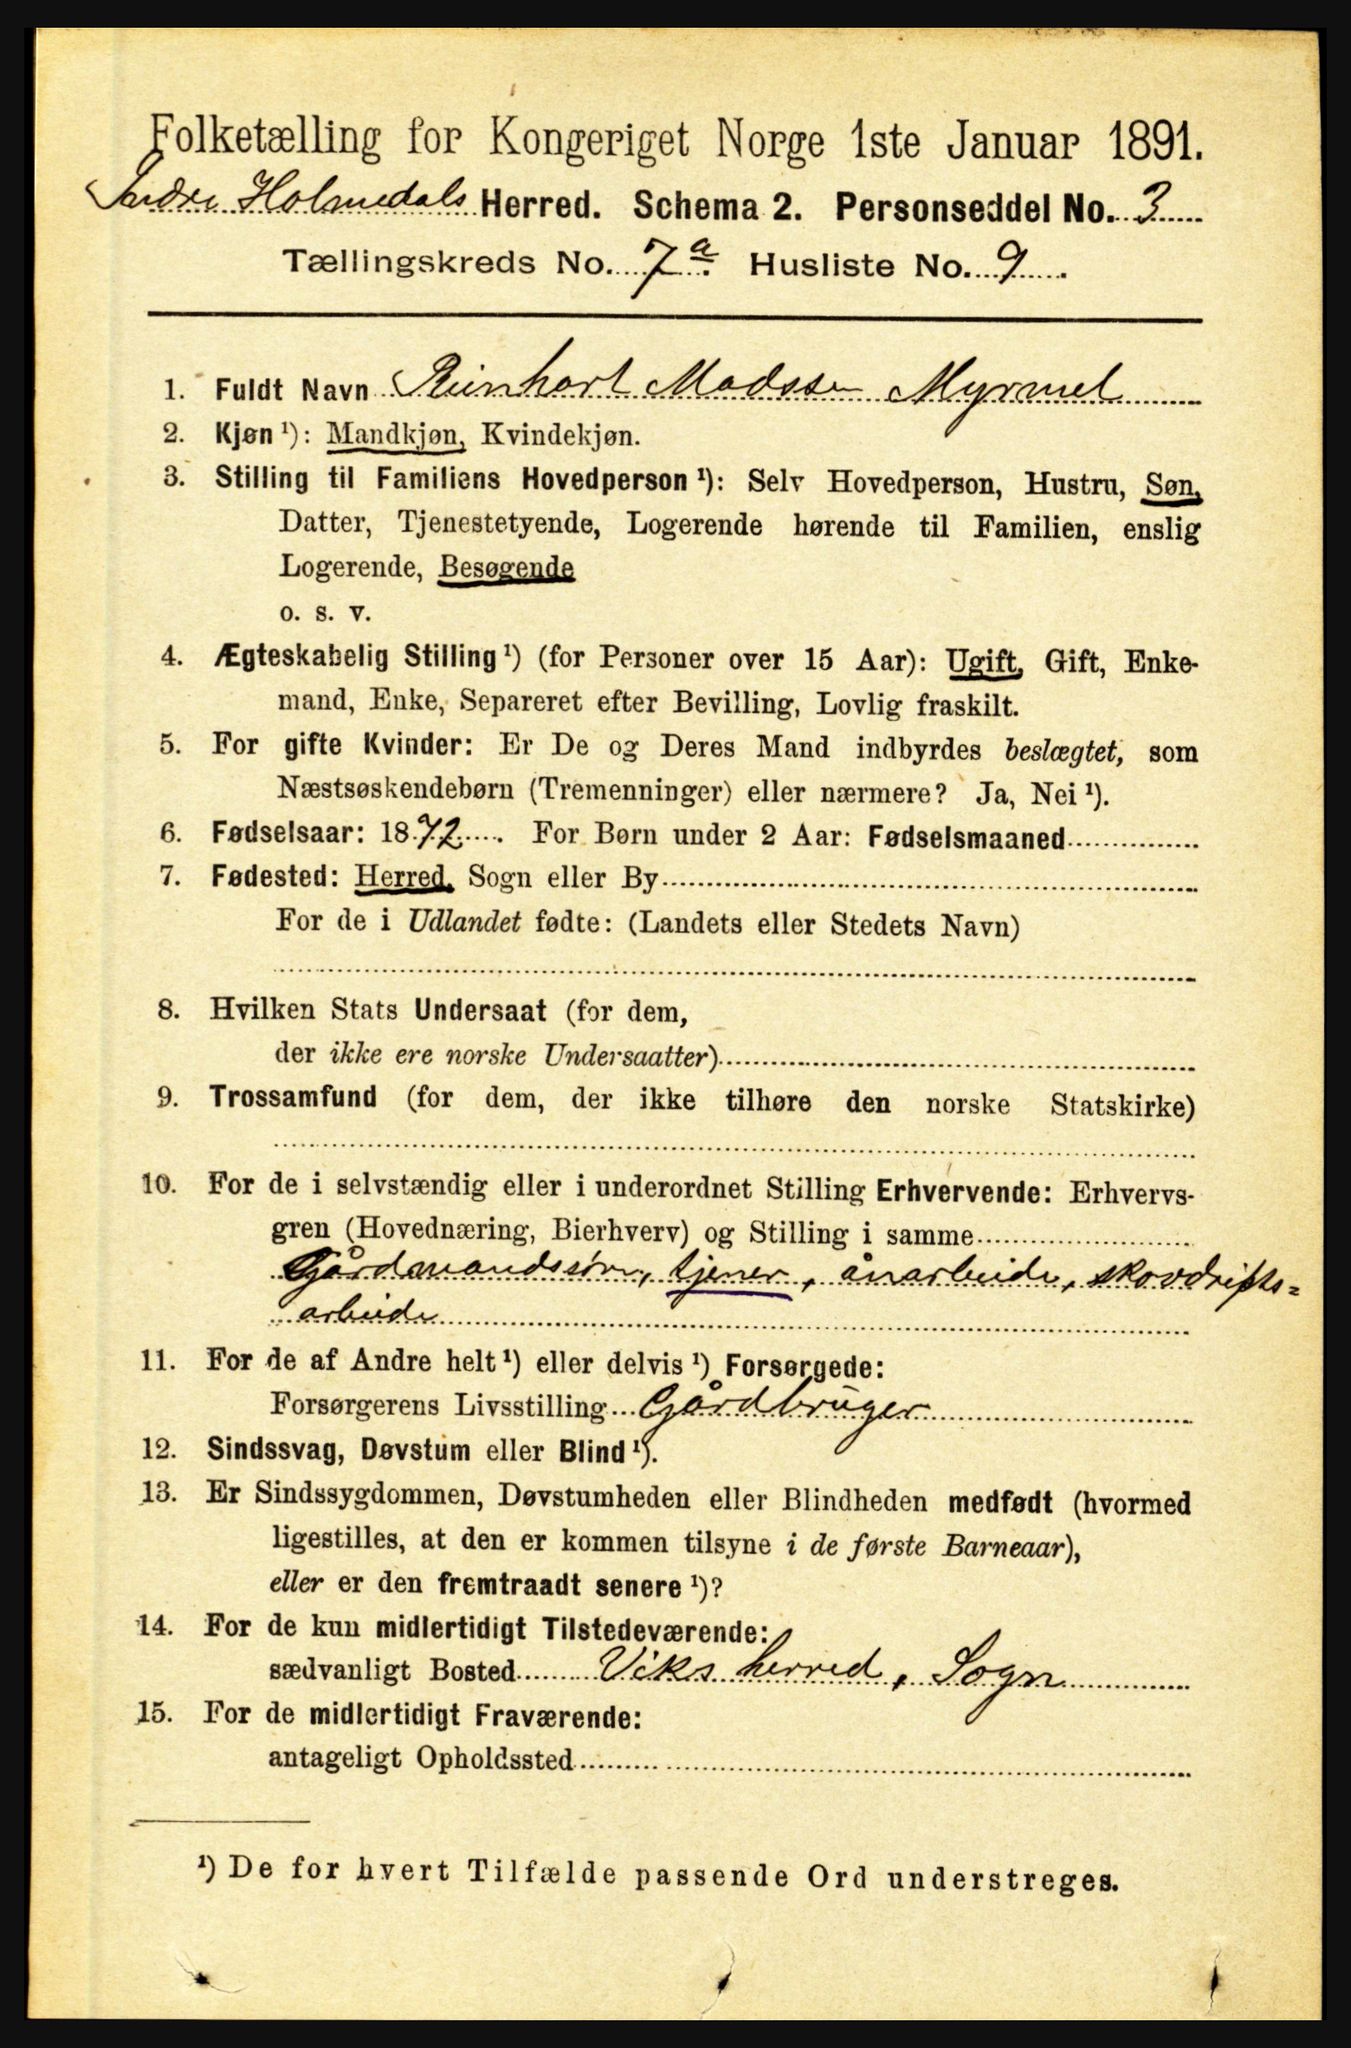 Folketælling for Kongeriget Norge 1ste Januar 1891.
Indre Holmedals Herred. Schema 2. Personseddel No. 3
Tællingskreds No. 7a. Husliste No. 9.
1. Fuldt Navn Reinhart Madssen Myrmel
2. Kjøn ¹): Mandkjøn, Kvindekjøn.
3. Stilling til Familiens Hovedperson ¹): Selv Hovedperson, Hustru, Søn,
Datter, Tjenestetyende, Logerende hørende til Familien, enslig
Logerende, Besøgende
o. s. v.
4. Ægteskabelig Stilling ¹) (for Personer over 15 Aar): Ugift, Gift, Enke-
mand, Enke, Separeret efter Bevilling, Lovlig fraskilt.
5. For gifte Kvinder: Er De og Deres Mand indbyrdes beslægtet, som
Næstsøskendebørn (Tremenninger) eller nærmere? Ja, Nei ¹).
6. Fødselsaar: 1872. For Børn under 2 Aar: Fødselsmaaned
7. Fødested: Herred, Sogn eller By
For de i Udlandet fødte: (Landets eller Stedets Navn)
8. Hvilken Stats Undersaat (for dem,
der ikke ere norske Undersaatter)
9. Trossamfund (for dem, der ikke tilhøre den norske Statskirke)
10. For de i selvstændig eller i underordnet Stilling Erhvervende: Erhvervs-
gren (Hovednæring, Bierhverv) og Stilling i samme
Gårdmandssøn, tjener, ånarbeide, skovdrifts=
arbeide
11. For de af Andre helt ¹) eller delvis ¹) Forsørgede:
Forsørgerens Livsstilling Gårdbruger
12. Sindssvag, Døvstum eller Blind ¹).
13. Er Sindssygdommen, Døvstumheden eller Blindheden medfødt (hvormed
ligestilles, at den er kommen tilsyne i de første Barneaar),
eller er den fremtraadt senere ¹)?
14. For de kun midlertidigt Tilstedeværende:
sædvanligt Bosted Viks herred, Sogn
15. For de midlertidigt Fraværende:
antageligt Opholdssted
¹) De for hvert Tilfælde passende Ord understreges.